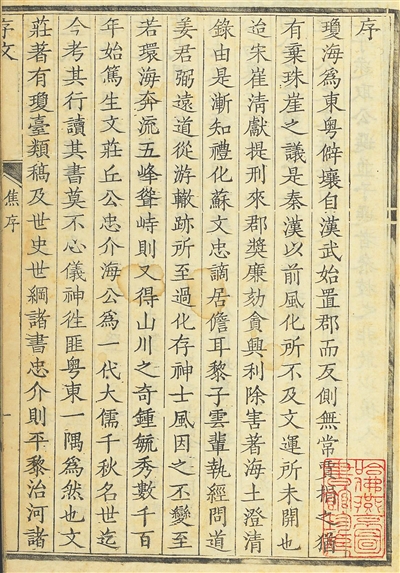 序
瓊海爲東粤僻壤自漢武始置郡而反側無常賈捐之猶
有棄珠崖之議是秦漢以前風化所不及文運所未開也
迨宋崔清獻提刑來郡奬廉劾貪興利除害著海上澄清
錄由是漸知禮化蘇文忠謫居儋耳黎子雲輩執經問道
姜君弼遠道從游轍跡所至過化存神士風因之丕變至
若環海奔流五峰聳峙則又得山川之奇鍾毓秀數千百
年始篤生文莊丘公忠介海公爲一代大儒千秋名世迄
今考其行讀其書莫不心儀神徃匪粤東一隅爲然也文
莊著有瓊臺類稿及世史世綱諸書忠介則平黎治河諸
序文
焦序
一